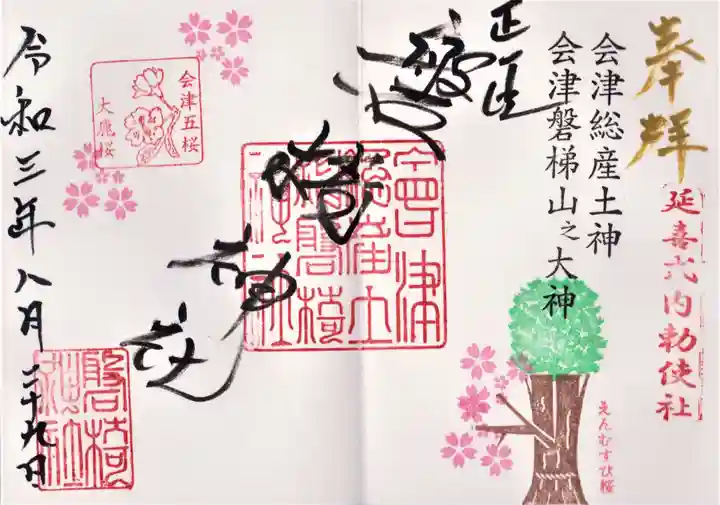 奉拝
延喜式内勅使社
会津総産土神
会津磐梯山之大神
えんむすび桜
正一位
磐椅神社
會津
総産土
磐椅
神社
会津五桜
大鹿桜
令和三年八月二十九日
磐椅
神社